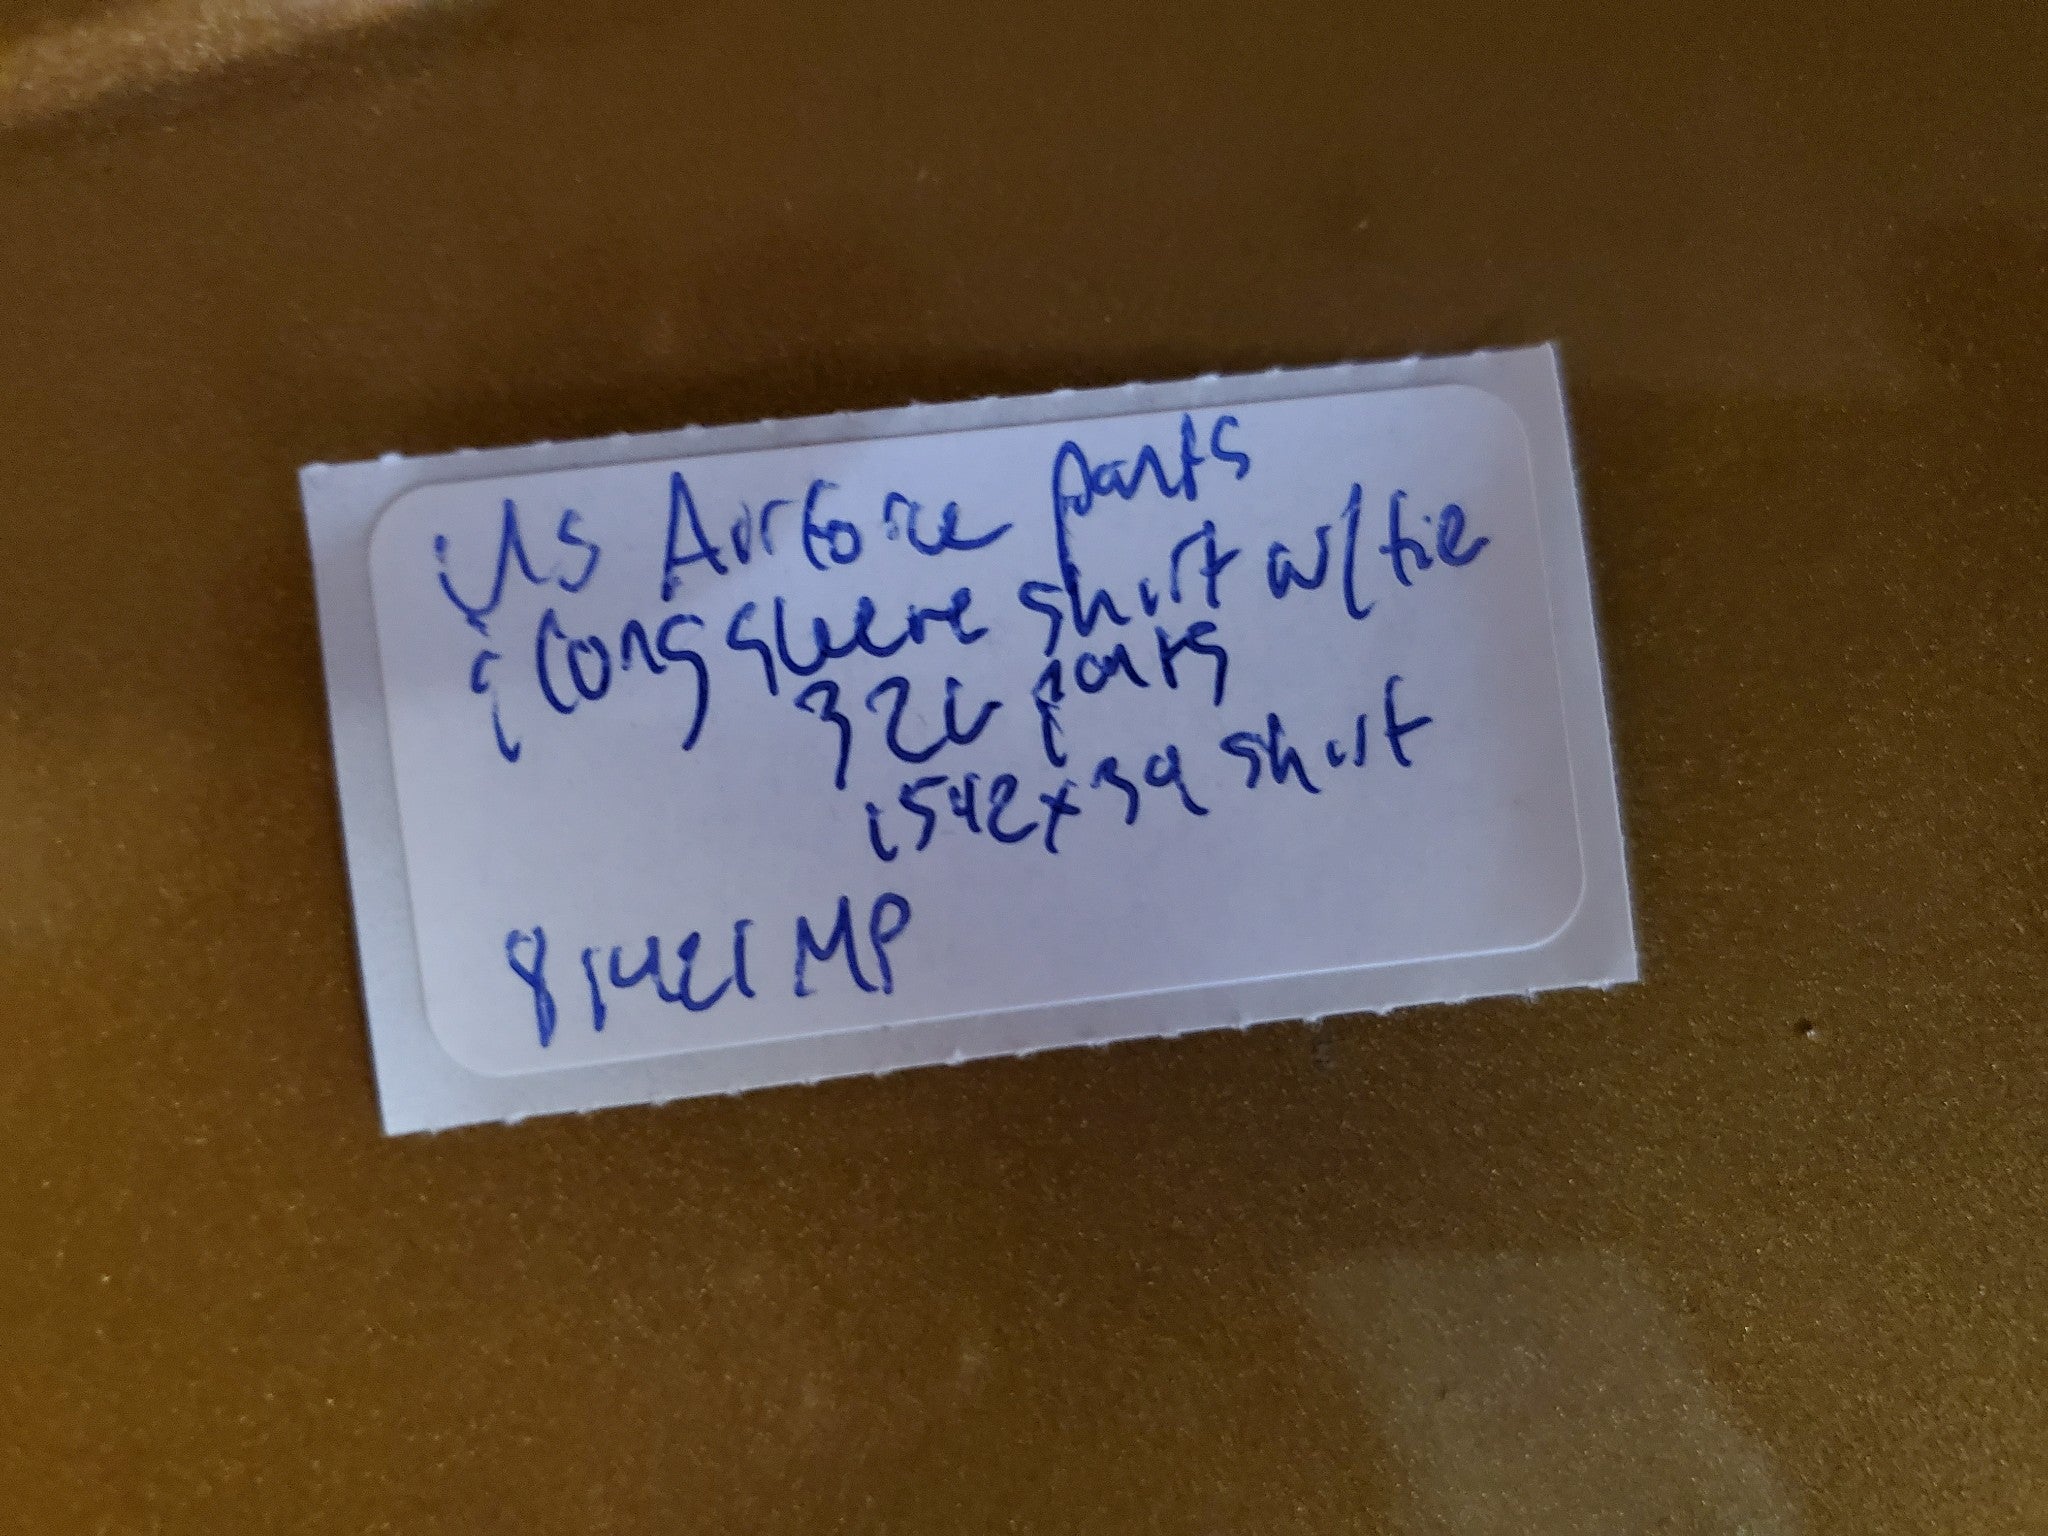 US Airforce pants
& long sleeve shirt w/ tie
32L pants
1542 x 39 shirt
81421 MP